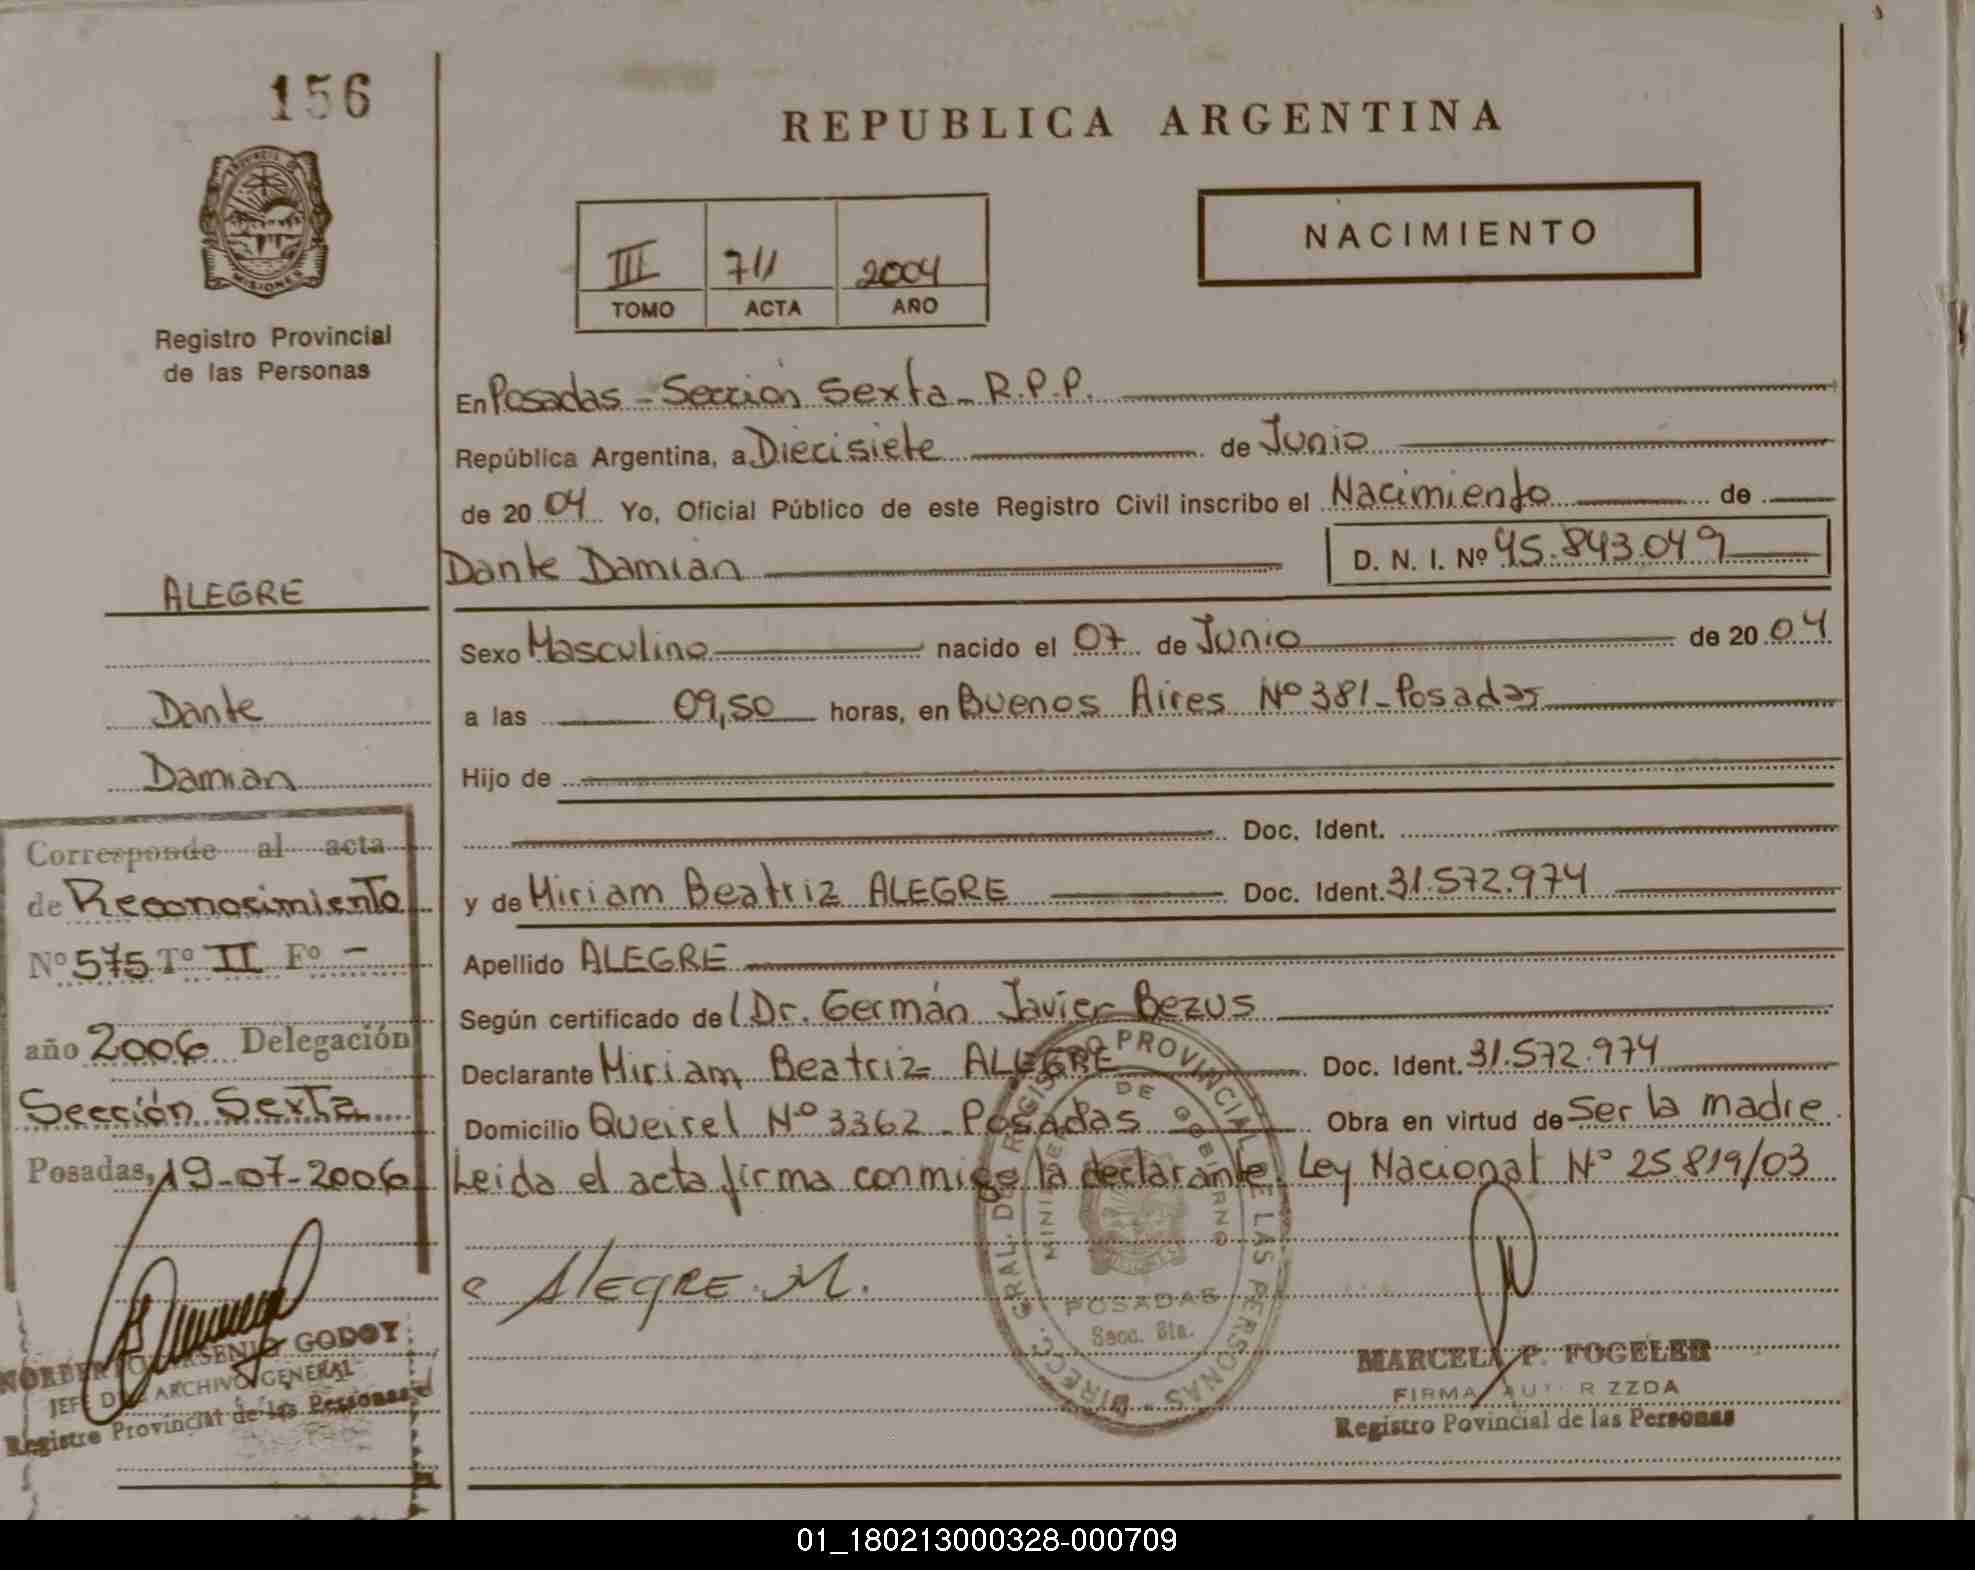 156
REPUBLICA ARGENTINA
PROVINCIA DE
MISIONES
Registro Provincial
de las Personas
III 711 2004
TOMO ACTA AÑO
NACIMIENTO
En Posadas - Sección Sexta - R.P.P.
República Argentina, a Diecisiete de Junio
de 2004 Yo, Oficial Público de este Registro Civil inscribo el Nacimiento de
Dante Damian D. N. I. Nº 45.843.049
ALEGRE
Dante
Damian
Sexo Masculino nacido el 07 de Junio de 2004
a las 09,50 horas, en Buenos Aires Nº 381 - Posadas
Hijo de
Doc. Ident.
y de Miriam Beatriz ALEGRE Doc. Ident. 31.572.974
Apellido ALEGRE
Según certificado del Dr. Germán Javier Bezus
Declarante Miriam Beatriz ALEGRE Doc. Ident. 31.572.974
Domicilio Queirel Nº 3362 - Posadas Obra en virtud de Ser la madre
Leida el acta firma conmigo la declarante. Ley Nacional Nº 25.819/03
Corresponde al acta
de Reconosimiento
Nº 575 Tº II Fº -
año 2006 Delegación
Sección Sexta
Posadas, 19-07-2006
NORBERTO ARSENIO GODOY
JEFE DEL ARCHIVO GENERAL
Registro Provincial de las Personas
ALEGRE. M.
DIRECC. GRAL. DE REGISTRO PROVINCIAL DE LAS PERSONAS
MINISTERIO DE GOBIERNO
POSADAS
Secc. 6ta.
MARCELA P. FOGELER
FIRMA AUTORIZZDA
Registro Povincial de las Personas
01_180213000328-000709